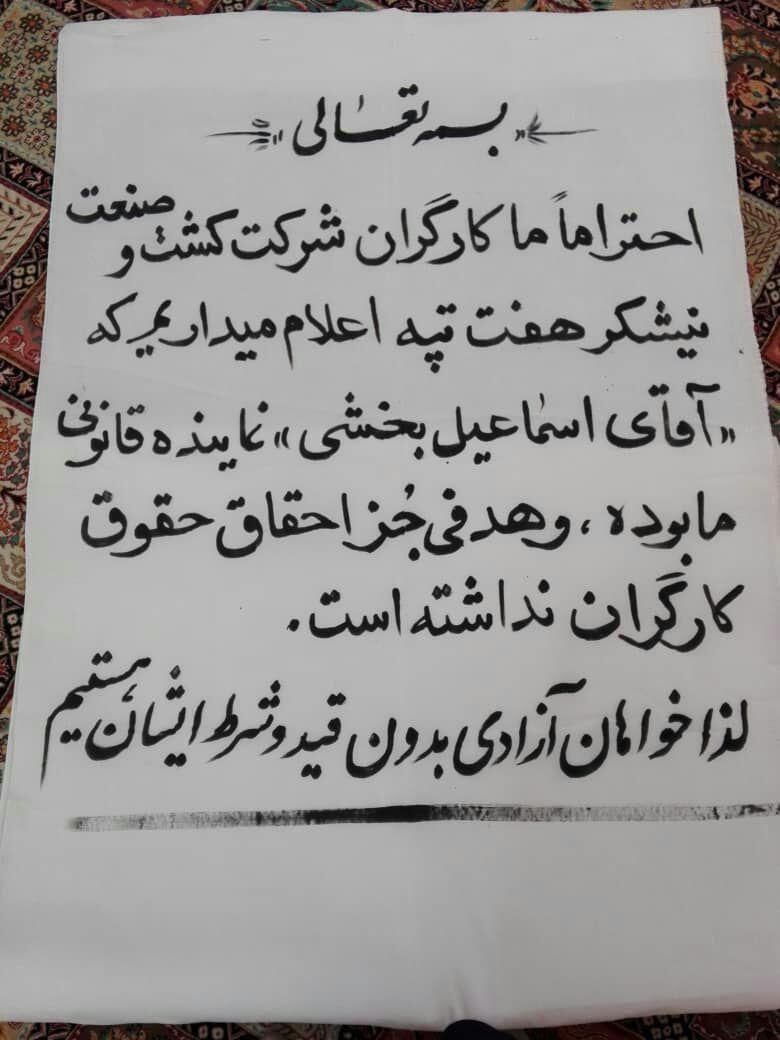 بسمه تعالی
احتراماً ما کارگران شرکت کشت و صنعت
نیشکر هفت تپه اعلام میداریم که
«آقای اسماعیل بخشی» نماینده قانونی
ما بوده ، و هدفی جُز احقاق حقوق
کارگران نداشته است .
لذا خواهان آزادی بدون قید و شرط ایشان هستیم